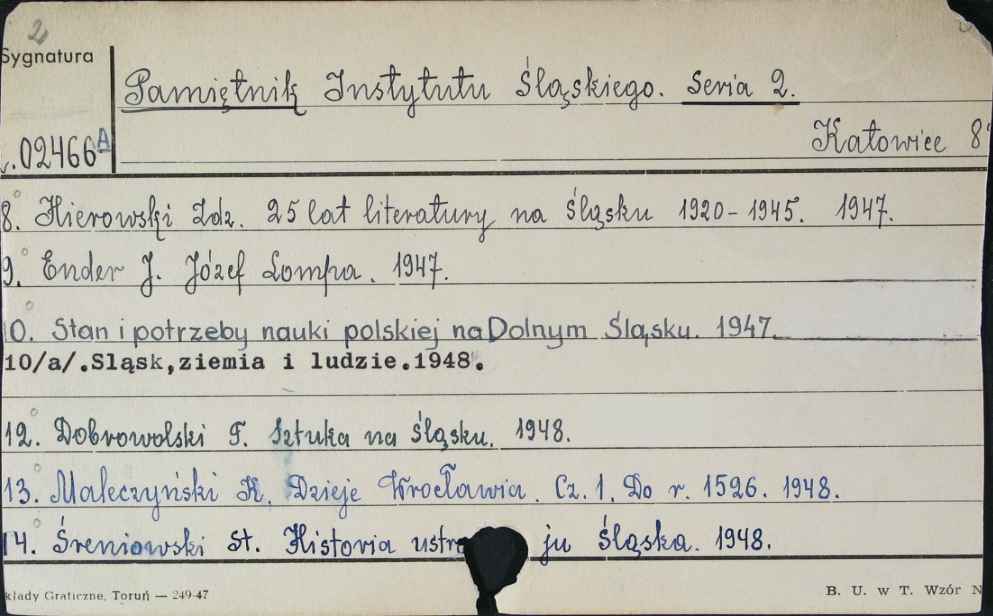 2
Sygnatura
Pamiętnik Instytutu Śląskiego. Seria 2.
02466 A
Katowice 8°
8. Hierowski Zdz. 25 lat literatury na Śląsku 1920-1945. 1947.
9. Ender J. Józef Lompa. 1947.
10. Stan i potrzeby nauki polskiej na Dolnym Śląsku. 1947.
10/a/.Sląsk,ziemia i ludzie.1948.
12. Dobrowolski T. Sztuka na Śląsku. 1948.
13. Maleczyński K. Dzieje Wrocławia. Cz. 1. Do r. 1526. 1948.
14. Śreniowski St. Historia ustr ju Śląska. 1948.
kłady Graficzne, Toruń — 249-47
B. U. w T. Wzór N